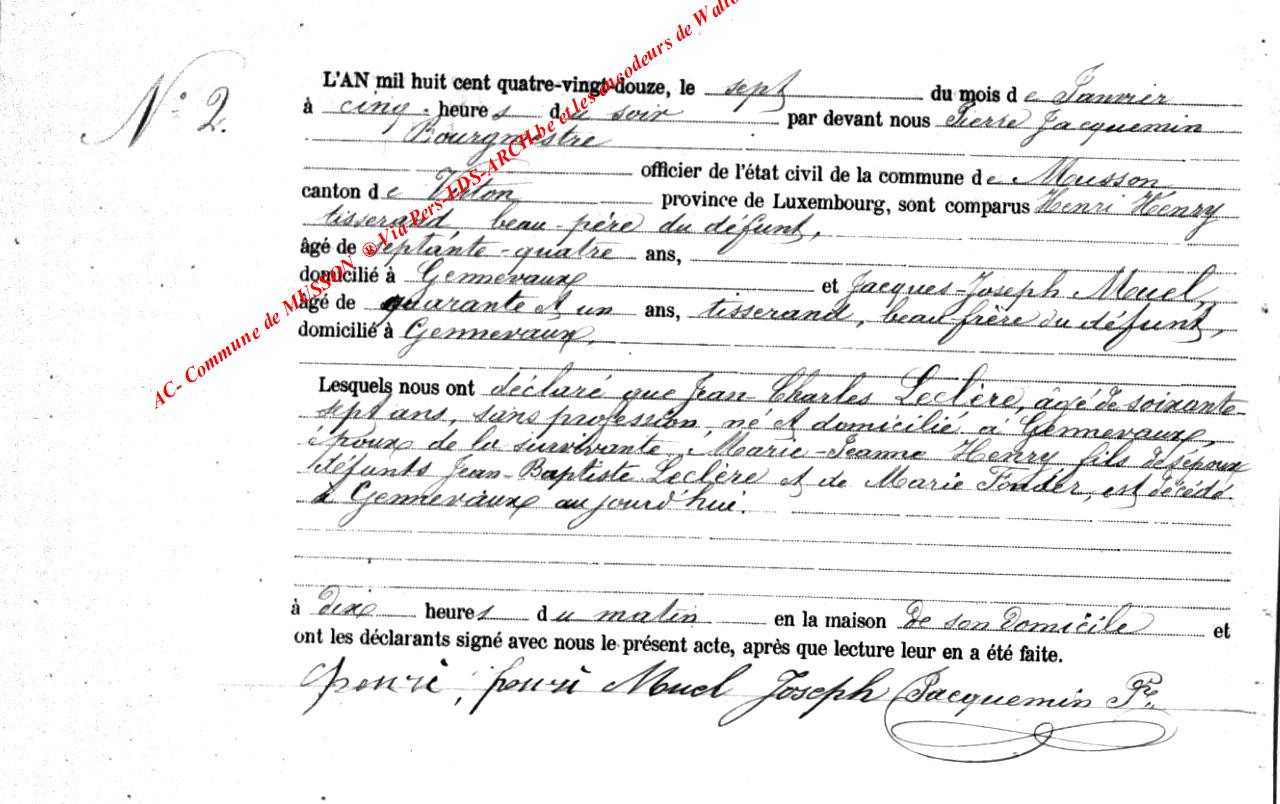 N° 2.
L'AN mil huit cent quatre-vingt-douze, le sept du mois de Janvier
à cinq heures du soir par devant nous Pierre Jacquemin
Bourgmestre
officier de l'état civil de la commune de Musson
canton de Virton province de Luxembourg, sont comparus Henri Henry
tisserand, beau-père du défunt,
âgé de septante-quatre ans,
domicilié à Gennevaux et Jacques-Joseph Muel,
âgé de quarante et un ans, tisserand, beau-frère du défunt,
domicilié à Gennevaux.
Lesquels nous ont déclaré que Jean-Charles Leclère, âgé de soixante-
sept ans, sans profession, né et domicilié à Gennevaux,
époux de la survivante Marie-Jeanne Henry fils des époux
défunts Jean-Baptiste Leclère et de Marie Fonder, est décédé
à Gennevaux aujourd'hui.
à dix heures du matin en la maison de son domicile et
ont les déclarants signé avec nous le présent acte, après que lecture leur en a été faite.
henri, henri Muel Joseph Jacquemin Pre.
AC- Commune de MUSSON ® Via Pers-EDS-ARCH.be et les encodeurs de